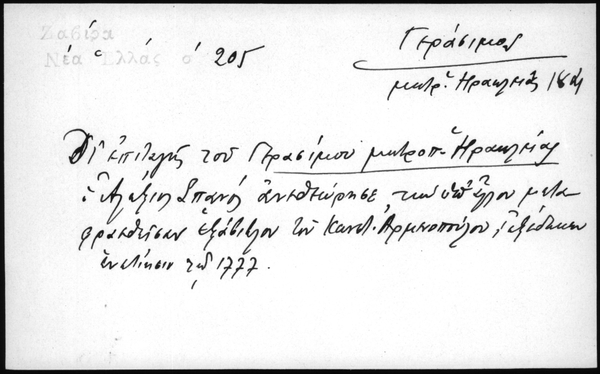 Ζαβίρα
Νέα Ἑλλάς σ 205
Γεράσιμος
μητρ. Ἡρακλείας 18
Δι' ἐπιταγῆς τοῦ Γερασίμου μητροπ. Ἡρακλείας
ὁ Ἀλέξιος Σπανός ἀνεθεώρησε τὴν ὑπ' ἄλλου μετα
φρασθεῖσαν ἑξάβιβλον τοῦ Κωνστ. Ἀρμενοπούλου, ἐξέδωκεν
ἐν 1777.